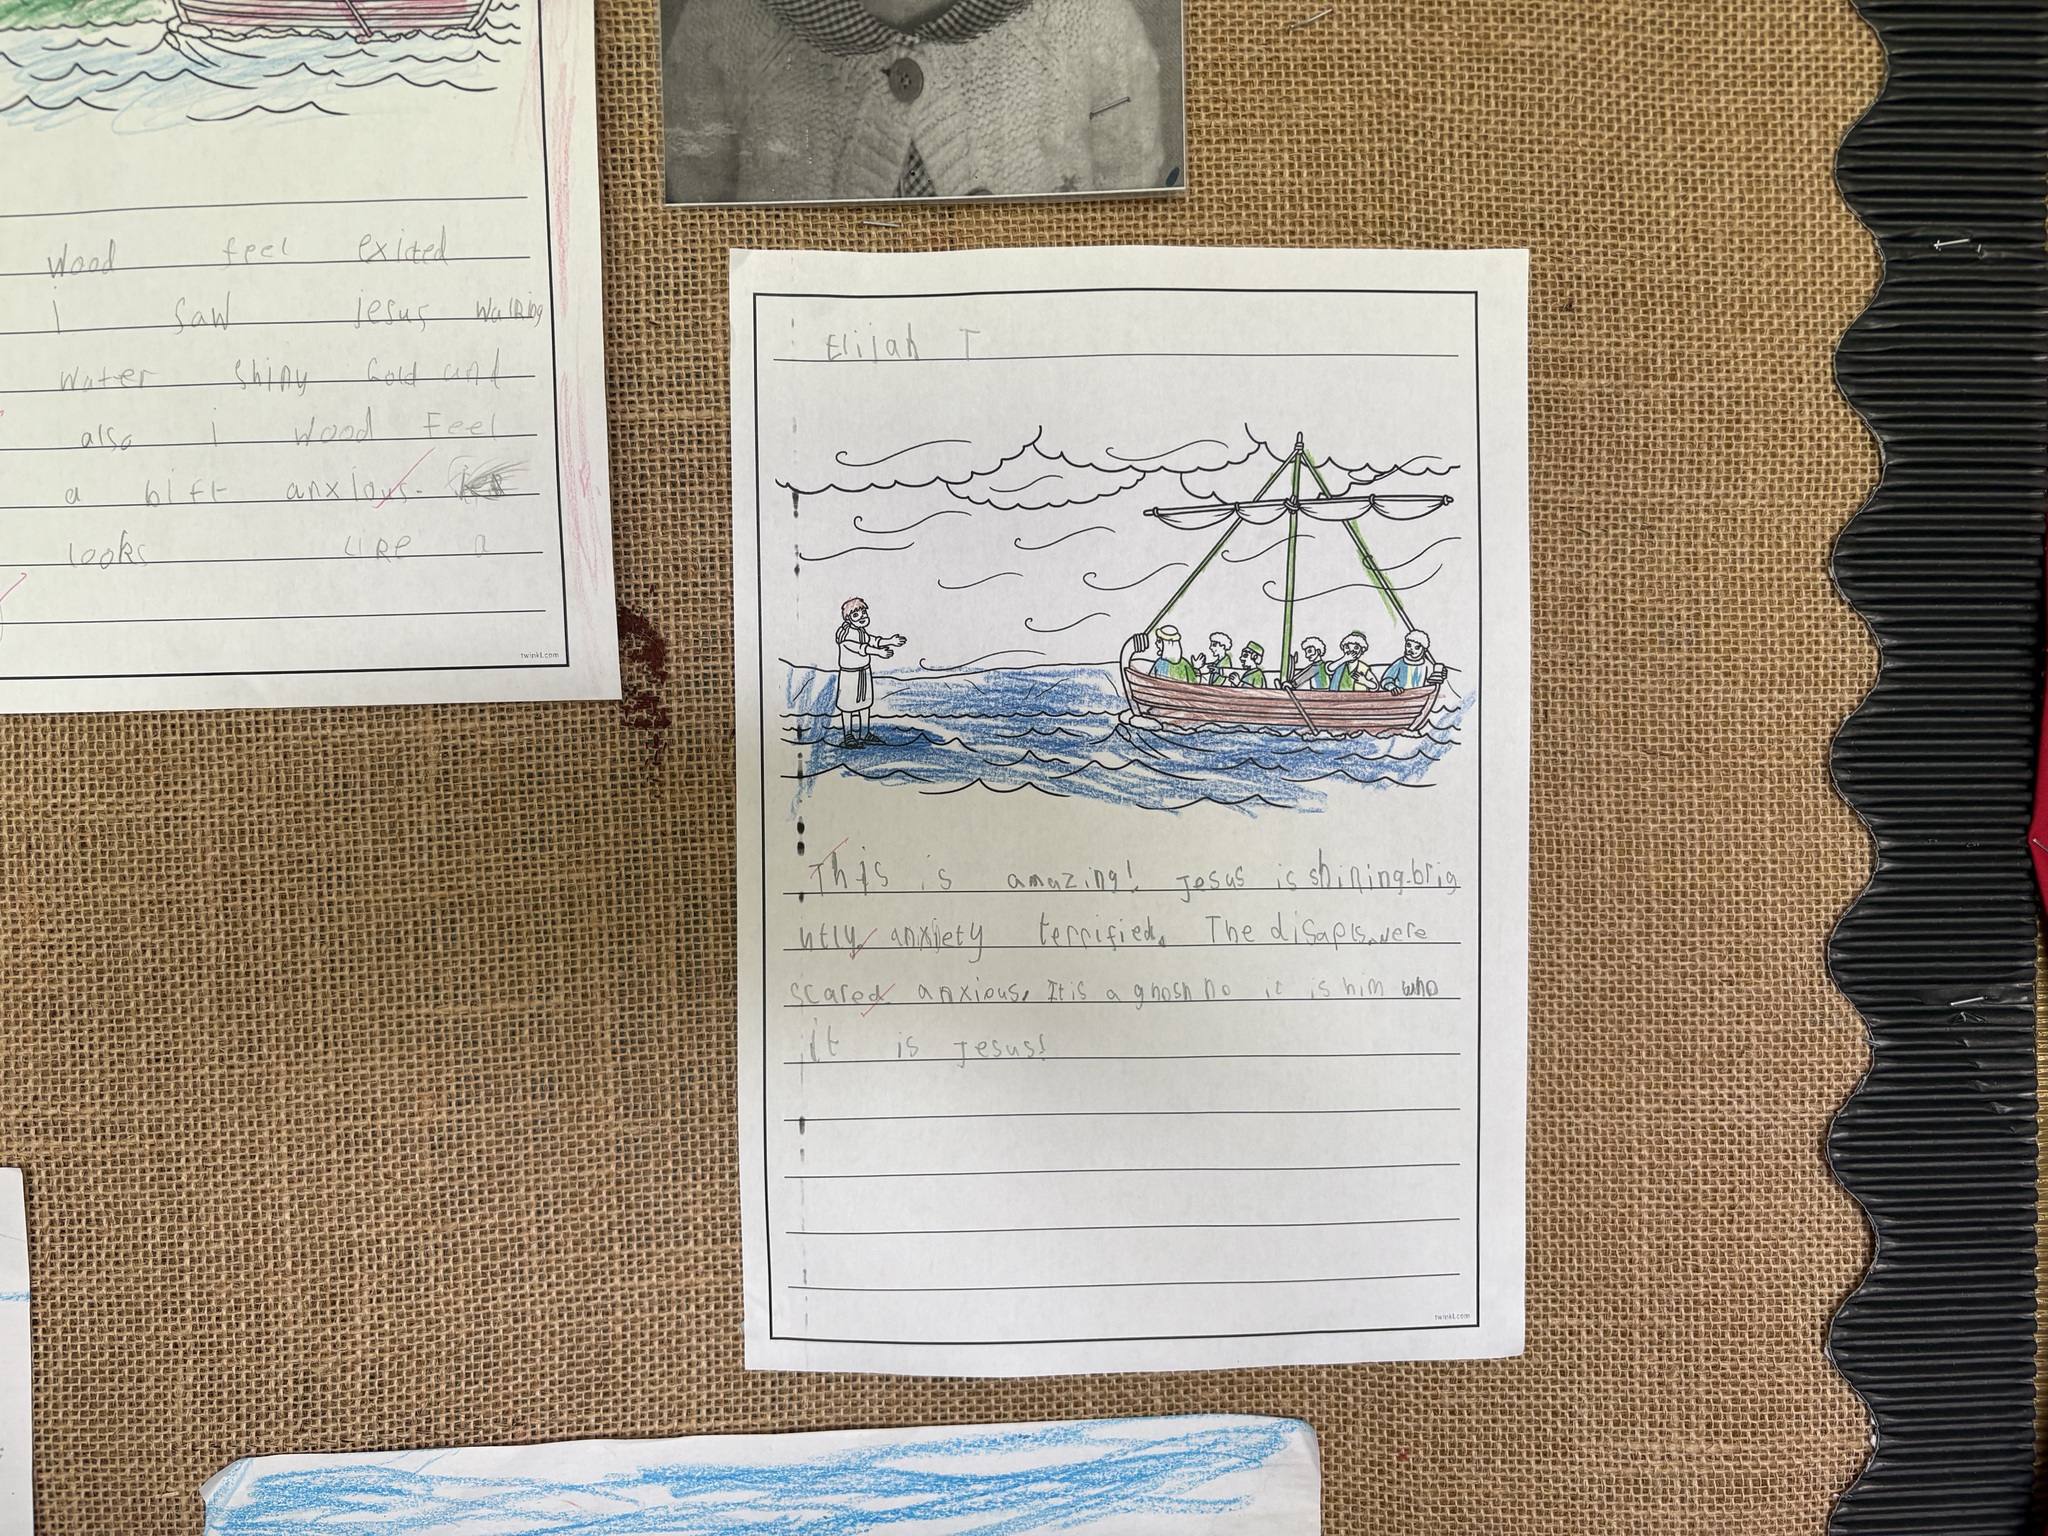 wood feel exited
i saw jesus walking
water shiny Gold and
also i wood Feel
a bift anxious.
looks like a
twinkl.com
Elijah T
This is amazing! Jesus is shining brig
htly, anxjety terrified. The disapls were
scared anxious, It is a ghosh no it is him who
it is Jesus!
twinkl.com